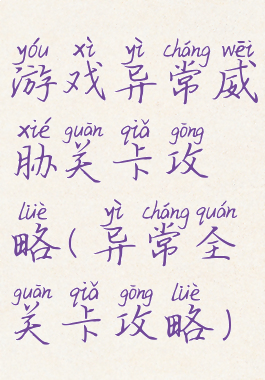 yóu xì yì cháng wēi
游戏异常威
xié guān qiǎ gōng
胁关卡攻
lüè yì cháng quán
略(异常全
guān qiǎ gōng lüè
关卡攻略)